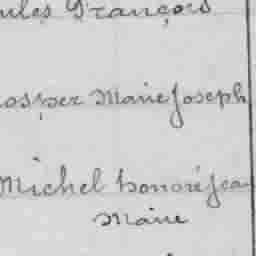 ules François
osper Marie Joseph
Michel honoré Jean
Marie